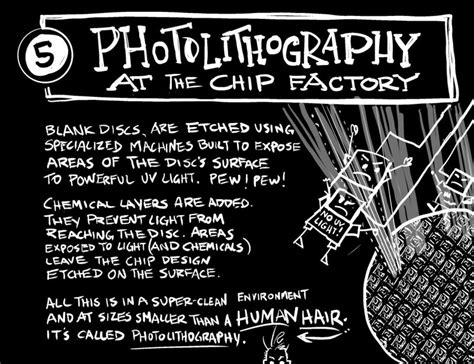 5
PHOTOLITHOGRAPHY
AT THE CHIP FACTORY
BLANK DISCS, ARE ETCHED USING
SPECIALIZED MACHINES BUILT TO EXPOSE
AREAS OF THE DISC'S SURFACE
TO POWERFUL UV LIGHT. PEW! PEW!
CHEMICAL LAYERS ARE ADDED.
THEY PREVENT LIGHT FROM
REACHING THE DISC. AREAS
EXPOSED TO LIGHT (AND CHEMICALS)
LEAVE THE CHIP DESIGN
ETCHED ON THE SURFACE.
NO UV
LIGHT!
ALL THIS IS IN A SUPER-CLEAN ENVIRONMENT
AND AT SIZES SMALLER THAN A HUMAN HAIR.
IT'S CALLED PHOTOLITHOGRAPHY.